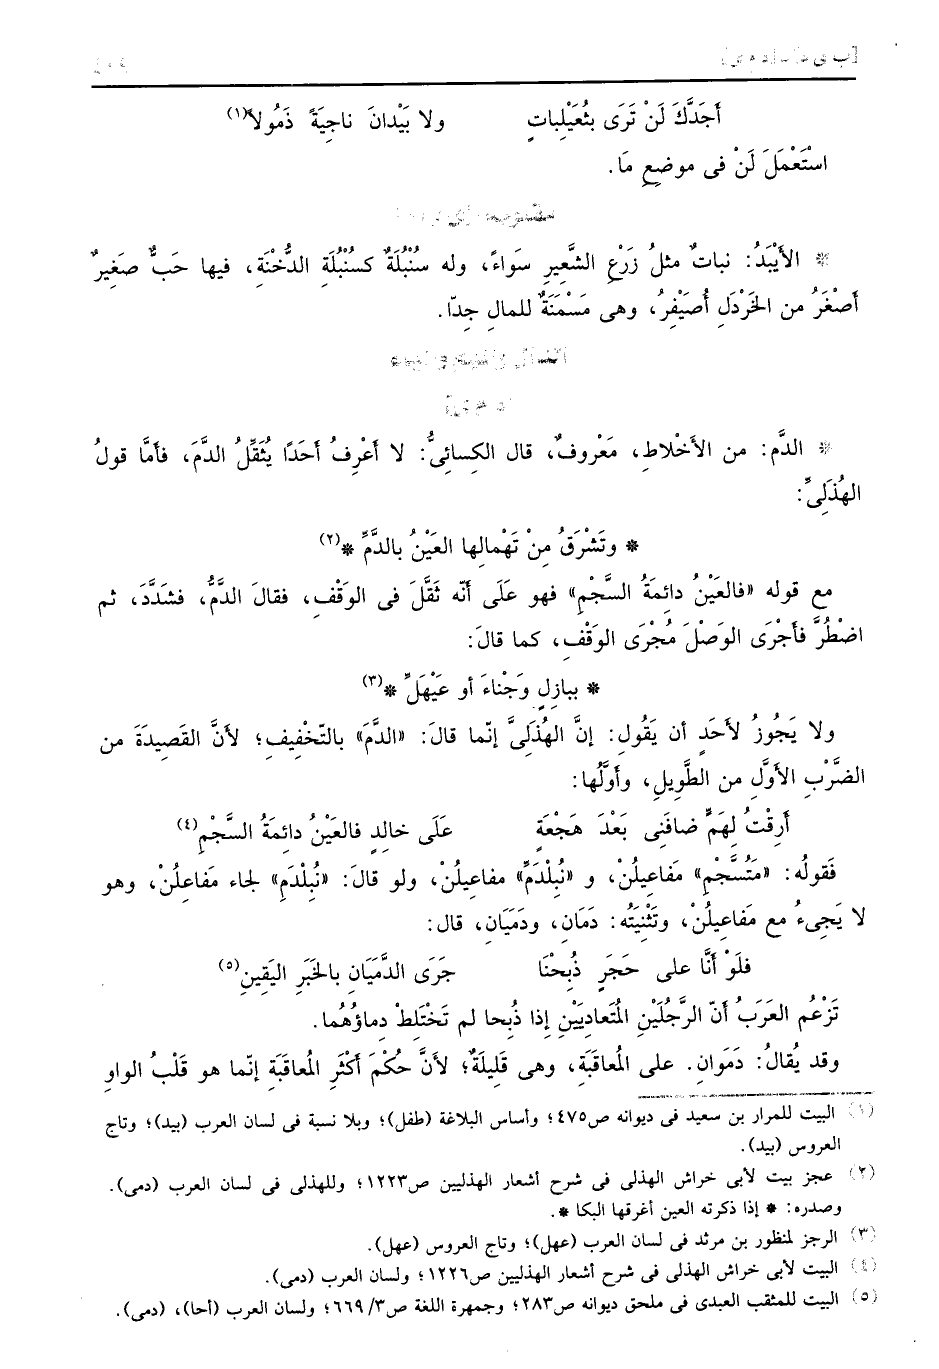 أَجَدَّكَ لَنْ تَرَى بثُعَيْلِباتٍ ولا بَيْدانَ ناجِيَةً ذَمُولاً(١)
اسْتَعْمَلَ لَنْ فى موضعِ مَا.
* الأَيْبَدُ: نباتٌ مثلُ زَرْعِ الشَّعِيرِ سَواءً، وله سُنْبُلَةٌ كسُنْبُلَةِ الدُّخْنَةِ، فيها حَبٌّ صَغِيرٌ
أَصْغَرُ من الخَرْدَلِ أُصَيْفِرُ، وهى مَسْمَنَةٌ للمالِ جِدّا.
* الدَّم: من الأَخْلاطِ، مَعْروفٌ، قال الكِسائِىُّ: لا أَعْرِفُ أحَدًا يُثَقِّلُ الدَّمَ، فأمَّا قولُ
الهُذَلِىِّ:
* وتَشْرَقُ مِنْ تَهْمالِها العَيْنُ بالدَّمِّ *(٢)
مع قوله «فالعَيْنُ دائِمَةُ السَّجْمِ» فهو عَلَى أنّه ثَقَّلَ فى الوَقْفِ، فقالَ الدَّمُّ، فشَدَّدَ، ثم
اضْطُرَّ فأَجْرَى الوَصْلَ مُجْرَى الوَقْفِ، كما قالَ:
* ببازِلٍ وَجْناءَ أو عَيْهَلِّ *(٣)
ولا يَجُوزُ لأَحَدٍ أن يَقُولِ: إنَّ الهُذَلِىَّ إنّما قالَ: «الدَّمَ» بالتّخْفِيفِ؛ لأنَّ القَصِيدَةَ من
الضَّرْبِ الأَوَّلِ من الطَّوِيلِ، وأوَّلُها:
أَرِقْتُ لِهَمٍّ ضافَنِى بَعْدَ هَجْعَةٍ عَلَى خالِدٍ فالعَيْنُ دائِمَةُ السَّجْمِ(٤)
فَقولُه: «مَتُسَّجْمِ» مَفاعِيلُنْ، و «نُبِلْدَمِّ» مفاعِيلُنْ، ولو قالَ: «نُبِلْدَمِ» لجاء مَفاعِلُنْ، وهو
لا يَجِىءُ مع مَفاعِيلُنْ، وتَثْنِيَتُه: دَمَان، ودَمَيَان، قال:
فلَوْ أَنَّا على حَجَرٍ ذُبِحْنَا جَرَى الدَّمَيَانِ بالخَبَرِ اليَقِينِ(٥)
تَزْعُم العَرَبُ أنّ الرَّجُلَيْنِ المُتَعادِيَيْنِ إذا ذُبِحا لم تَخْتَلِطْ دِماؤُهُما.
وقد يُقالُ: دَمَوانِ. على المُعاقَبَةِ، وهى قَلِيلَةٌ؛ لأنَّ حُكْمَ أَكْثَرِ المُعاقَبَةِ إنّما هو قَلْبُ الواوِ
(١) البيت للمرار بن سعيد فى ديوانه ص٤٧٥؛ وأساس البلاغة (طفل)؛ وبلا نسبة فى لسان العرب (بيد)؛ وتاج
العروس (بيد).
(٢) عجز بيت لأبى خراش الهذلى فى شرح أشعار الهذليين ص١٢٢٣؛ وللهذلى فى لسان العرب (دمى).
وصدره: * إذا ذكرته العين أغرقها البكا *.
(٣) الرجز لمنظور بن مرثد فى لسان العرب (عهل)؛ وتاج العروس (عهل).
(٤) البيت لأبى خراش الهذلى فى شرح أشعار الهذليين ص١٢٢٦؛ ولسان العرب (دمى).
(٥) البيت للمثقب العبدى فى ملحق ديوانه ص٢٨٣؛ وجمهرة اللغة ص٣/٦٦٩؛ ولسان العرب (أحا)، (دمى).